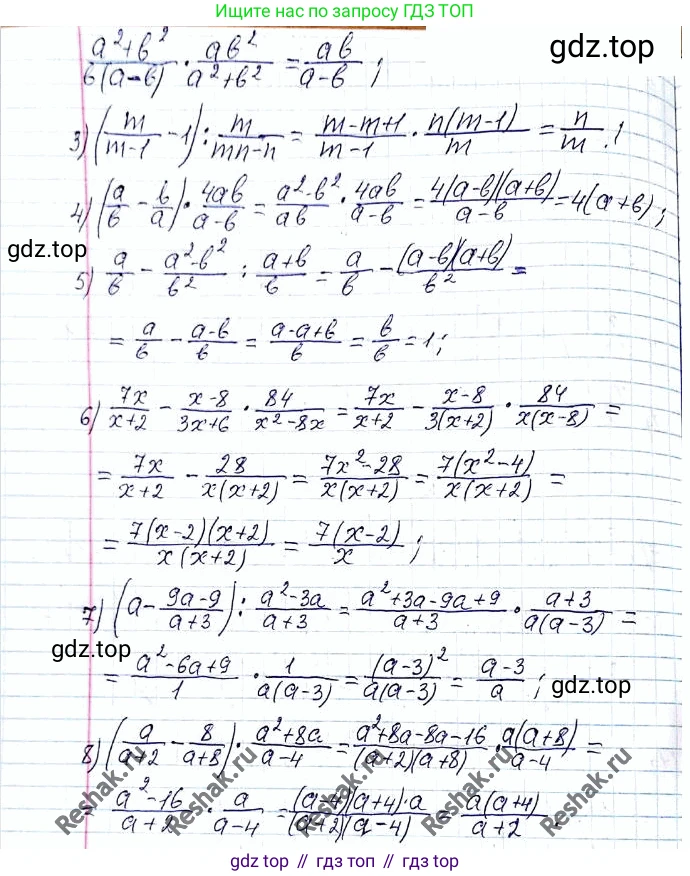 Ищите нас по запросу ГДЗ ТОП
gdz.top
(a²+b²)/(b(a-b)) · ab²/(a²+b²) = ab/(a-b);
3) (m/(m-1) - 1) : m/(mn-n) = (m-m+1)/(m-1) · n(m-1)/m = n/m.!
4) (a/b - b/a) · 4ab/(a-b) = (a²-b²)/ab · 4ab/(a-b) = 4(a-b)(a+b)/(a-b) = 4(a+b);
gdz.top
5) a/b - (a²-b²)/b² : (a+b)/b = a/b - (a-b)(a+b)/b² =
= a/b - (a-b)/b = (a-a+b)/b = b/b = 1;
6) 7x/(x+2) - (x-8)/(3x+6) · 84/(x²-8x) = 7x/(x+2) - (x-8)/(3(x+2)) · 84/(x(x-8)) =
= 7x/(x+2) - 28/(x(x+2)) = (7x²-28)/(x(x+2)) = 7(x²-4)/(x(x+2)) =
= 7(x-2)(x+2)/(x(x+2)) = 7(x-2)/x;
7) (a - (9a-9)/(a+3)) : (a²-3a)/(a+3) = (a²+3a-9a+9)/(a+3) · (a+3)/(a(a-3)) =
gdz.top
= (a²-6a+9)/1 · 1/(a(a-3)) = (a-3)²/(a(a-3)) = (a-3)/a;
gdz.top
8) (a/(a+2) - 8/(a+8)) · (a²+8a)/(a-4) = (a²+8a-8a-16)/((a+2)(a+8)) · a(a+8)/(a-4) =
= (a²-16)/(a+2) · a/(a-4) = (a-4)(a+4)·a/((a+2)(a-4)) = a(a+4)/(a+2).
Reshak.ru
Reshak.ru
Reshak.ru
Reshak.ru
Reshak.ru
gdz top // гдз топ // gdz.top